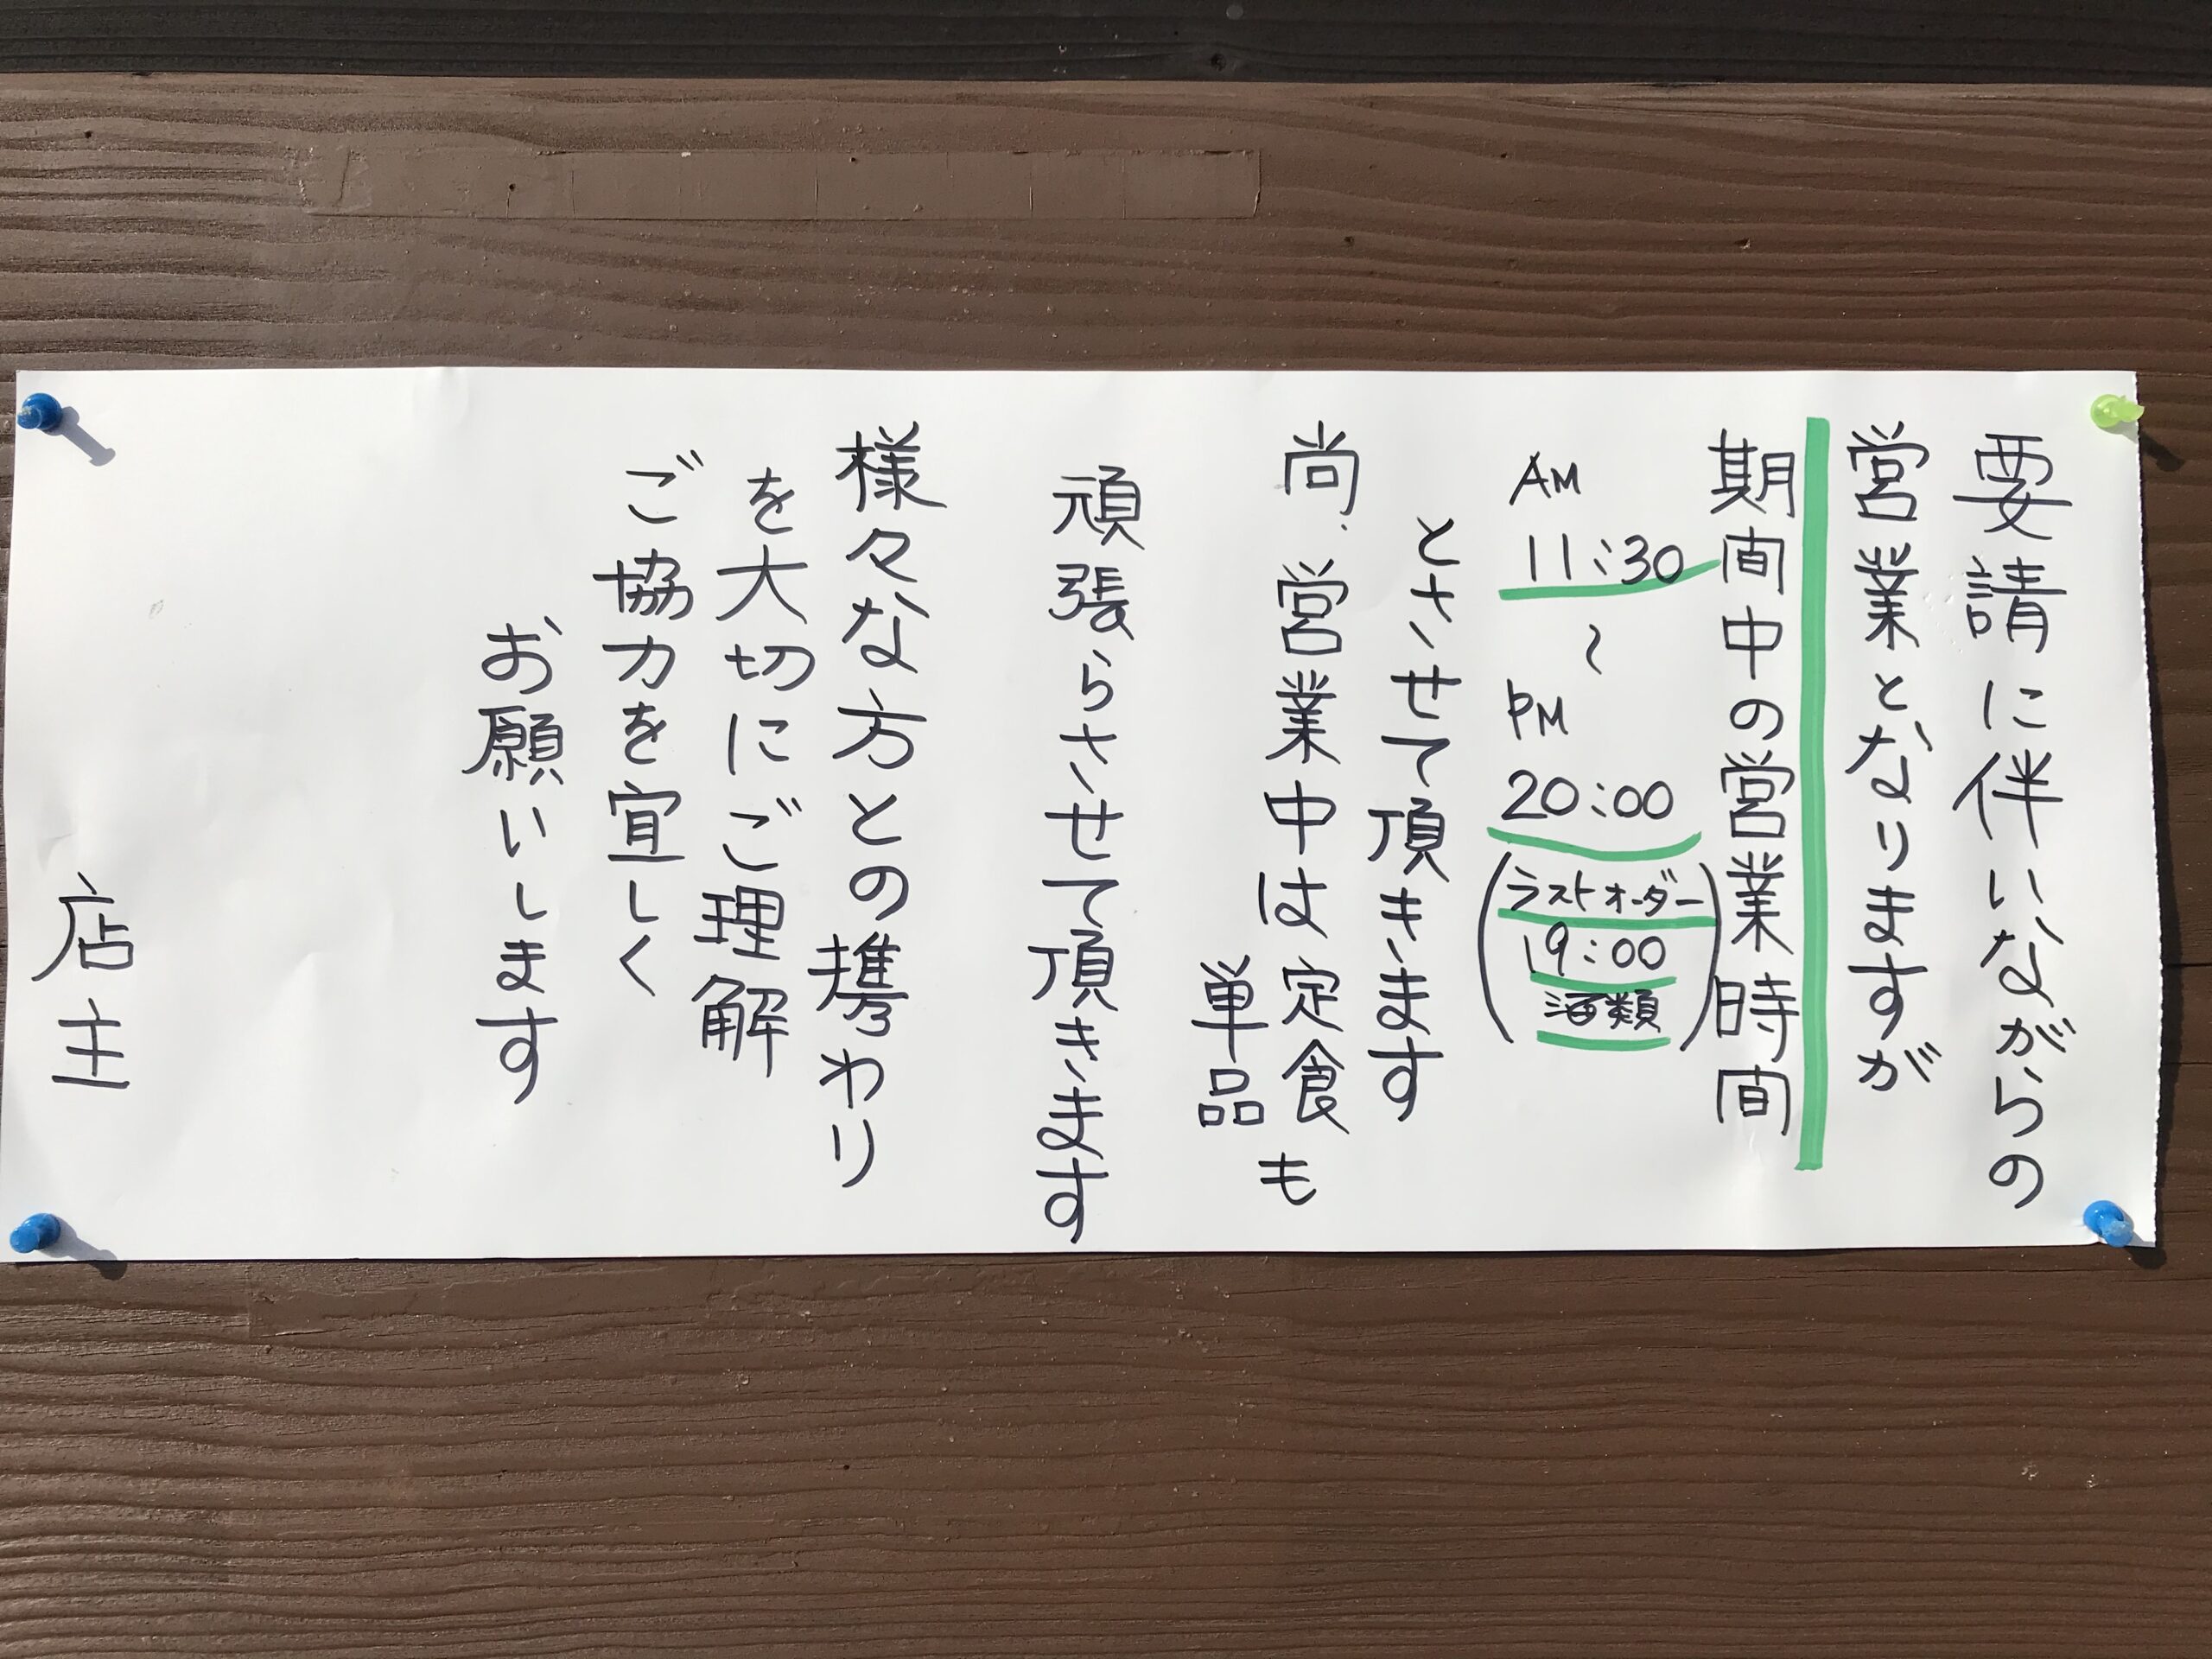 要請に伴いながらの
営業となりますが
期間中の営業時間
AM
11:30
～
PM
20:00
(ラストオーダー
19:00
酒類)
とさせて頂きます
尚、営業中は定食
単品も
頑張らさせて頂きます
様々な方との携わり
を大切にご理解
ご協力を宜しく
お願いします
店主